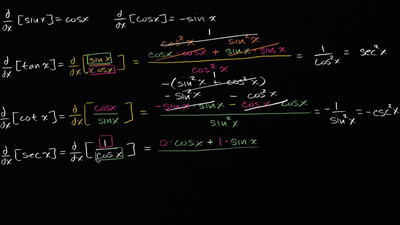 d/dx [sin x] = cos x    d/dx [cos x] = -sin x
1
cos²x    sin²x
d/dx [tan x] = d/dx [sin x / cos x] = (cos x · cos x + sin x · sin x) / cos²x = 1/cos²x = sec²x
-(sin²x + cos²x) 1
-sin²x - cos²x
d/dx [cot x] = d/dx [cos x / sin x] = (-sin x · sin x - cos x · cos x) / sin²x = -1/sin²x = -csc²x
d/dx [sec x] = d/dx [1 / cos x] = 0 · cos x + 1 · sin x